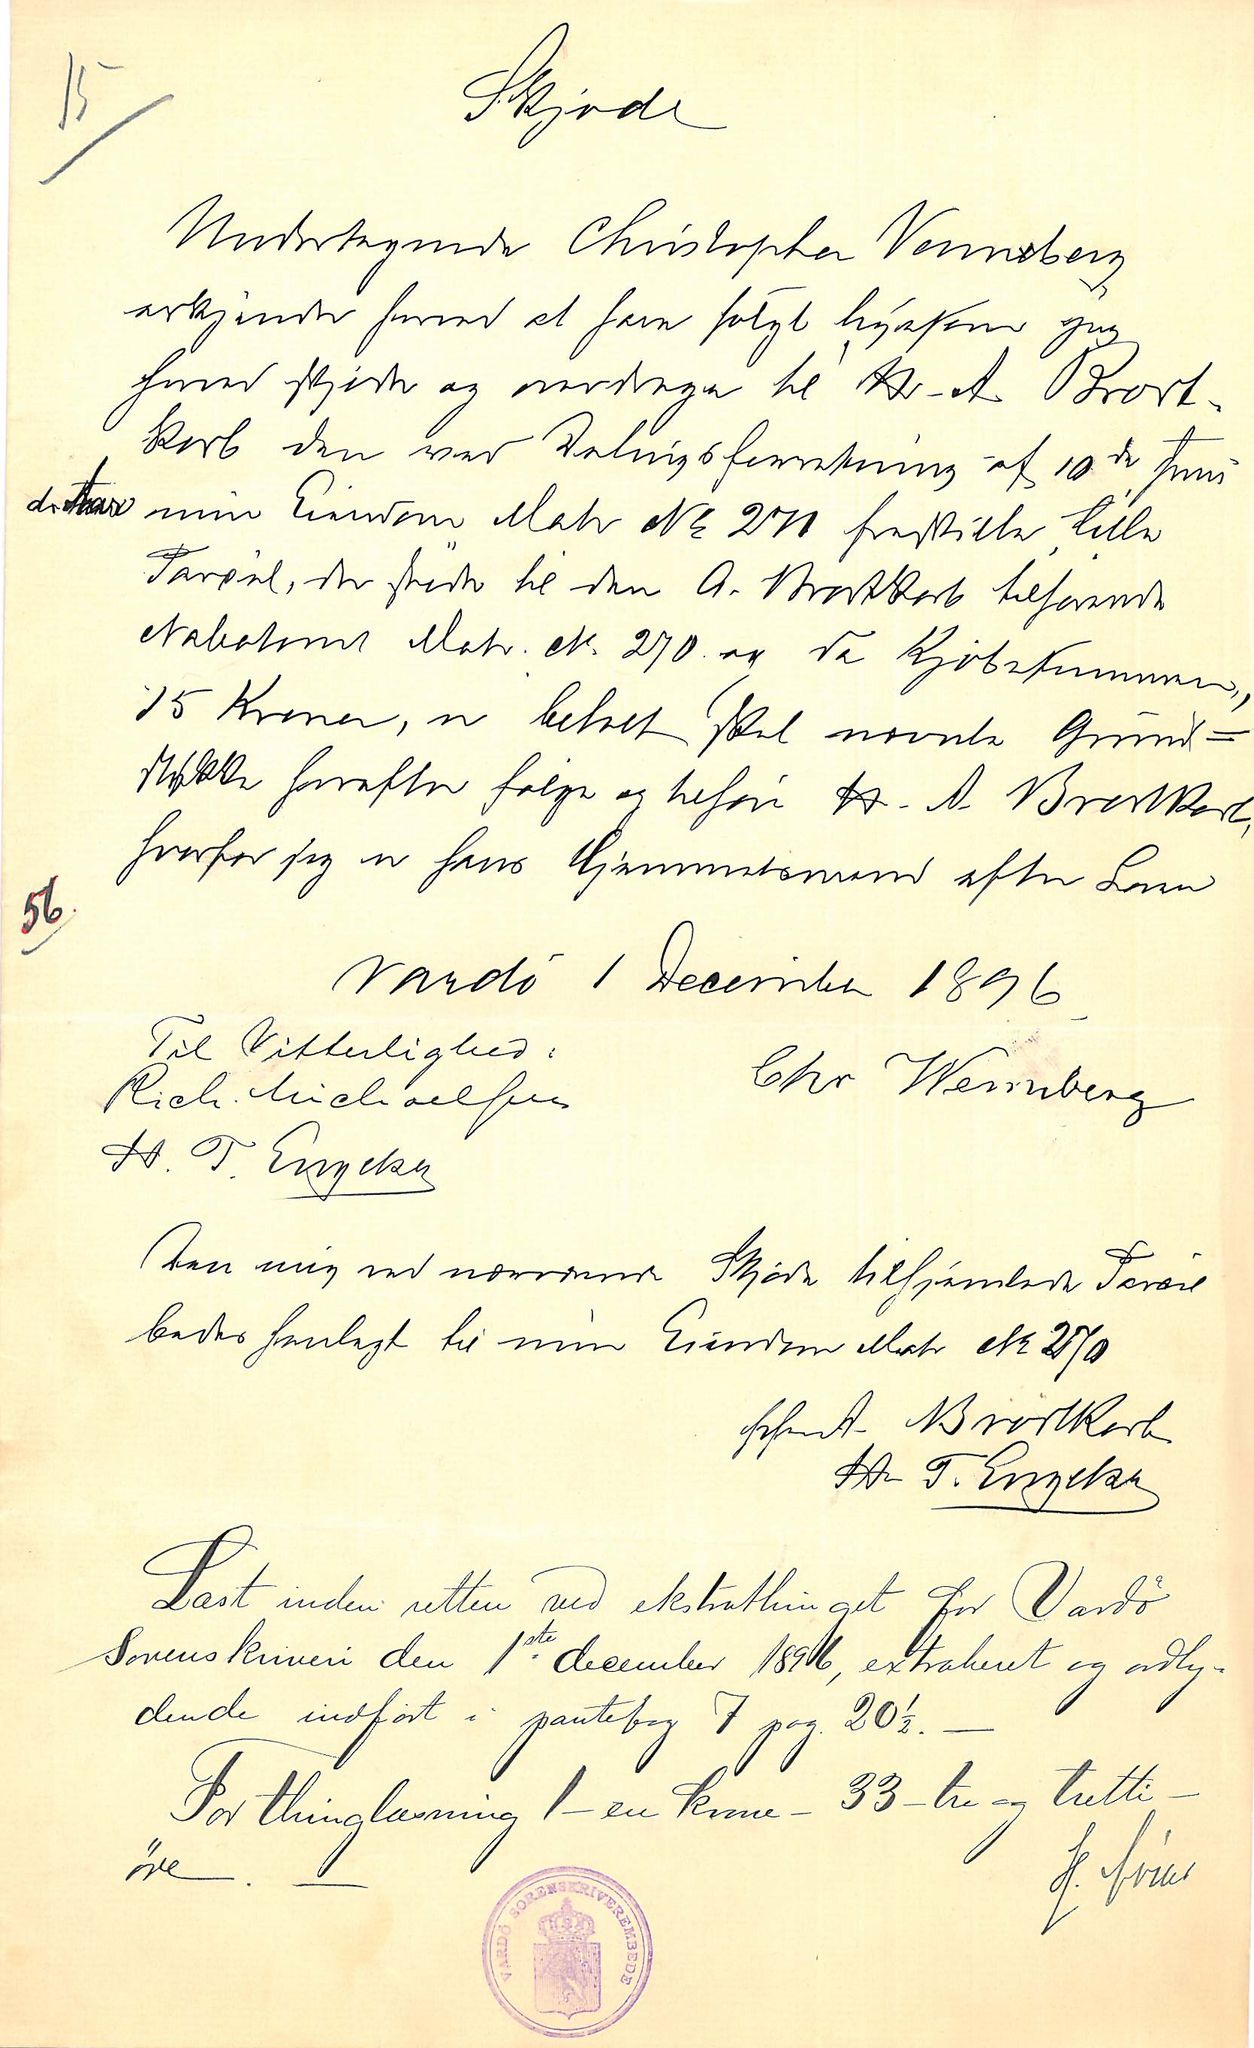 15
Skjøde
Undertegnede Christopher Vennberg
erkjender herved at have solgt ligesom jeg
herved skjøder og overdrager til H. A. Brodt-
korb den ved Delingsforretning af 10de Juni
d. Aar min Eiendom Matr No 271 fraskilte lille
Parcel, der støder til den A. Brodtkorb tilhørende
Nabotomt Matr. No. 270 og da Kjøbesummen,
15 Kroner, er betalt skal nævnte Grund=
stykke herefter følge og tilhøre H. A. Brodtkorb,
hvorfor jeg er hans Hjemmelsmand efter Loven
56.
Vardö 1 December 1896
Til Vitterlighed:
Chr Wennberg
Rich. Michaelsen
H. T. Engeby
Den mig ved nærværende Skjøde tilhjemlede Parcel
bedes henlagt til min Eiendom Matr No 270
A Brodtkorb
H. T. Engeby
Læst inden retten ved ekstrathinget for Vardö
Sorenskriveri den 1ste december 1896, extraheret og ordly-
dende indført i pantebog 7 pag. 20½. —
For thinglæsning 1 – en krone – 33 – tre og tretti –
öre. —
VARDÖ SORENSKRIVEREMBEDE